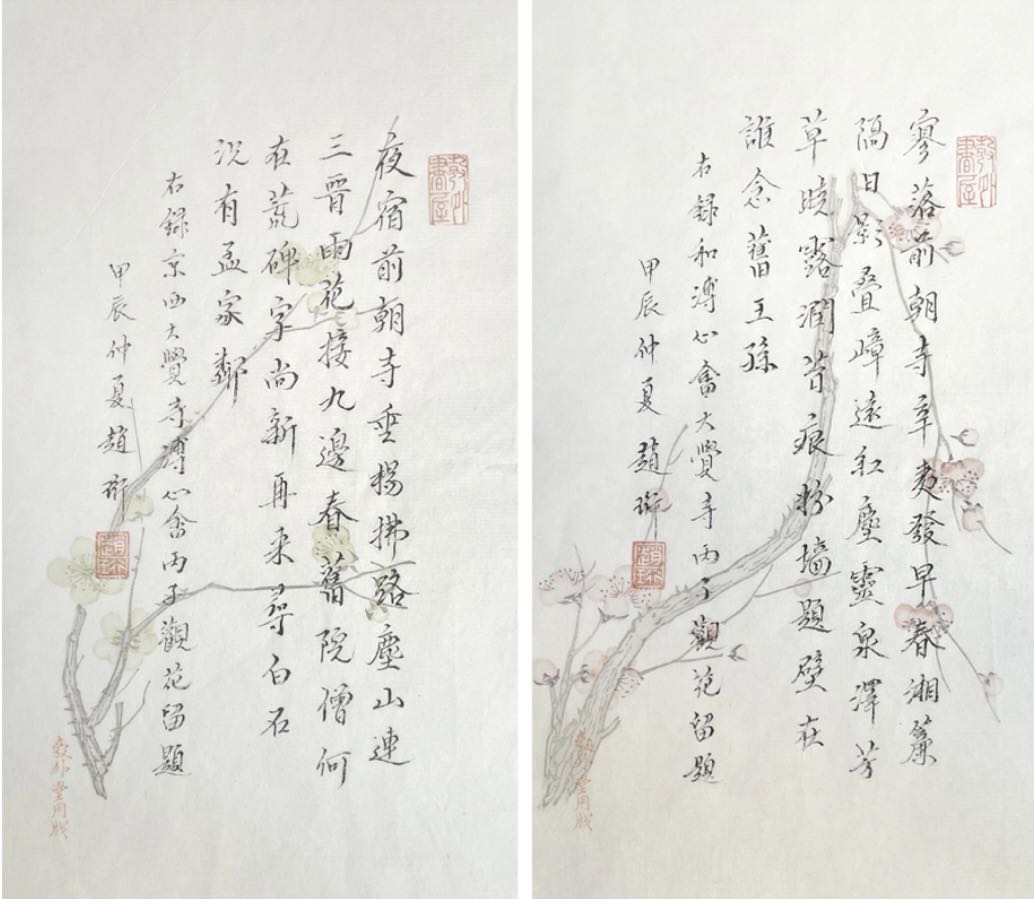 彀外書屋
夜宿前朝寺垂楊拂路塵山連
三晉雨花接九邊春舊院僧何
在荒碑字尚新再來尋白石
況有孟家鄰
右錄京西大覺寺溥心畬丙子觀花留題
甲辰仲夏趙珩
趙珩
彀外堂用牋
彀外書屋
寥落前朝寺辛夷發早春湘簾
隔日影疊嶂遠紅塵靈泉澤芳
草曉露潤苔痕粉墻題壁在
誰念舊王孫
右錄和溥心畬大覺寺丙子觀花留題
甲辰仲夏趙珩
趙珩
彀外堂用牋